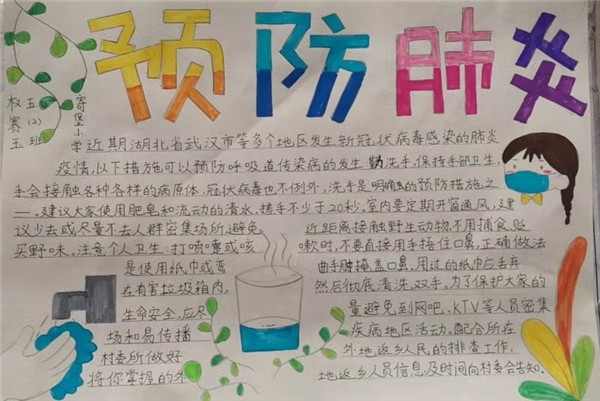 预防肺炎
寄堡小学
五(2)班
权赛玉
近期湖北省武汉市等多个地区发生新冠状病毒感染的肺炎
疫情,以下措施可以预防呼吸道传染病的发生 勤洗手,保持手部卫生,
手会接触各种各样的病原体,冠状病毒也不例外,洗手是明确的预防措施之
一。建议大家使用肥皂和流动的清水,搓手不少于20秒。室内要定期开窗通风,建
议少去或尽量不去人群密集场所,避免 近距离接触野生动物,不用捕食,贩
买野味,注意个人卫生 打喷嚏或咳 嗽时,不要直接用手捂住口鼻,正确做法
是使用纸巾或弯 曲手肘掩盖口鼻,用过的纸巾应丢弃
在有害垃圾箱内, 然后彻底清洗双手。为了保护大家的
生命安全,应尽 量避免到网吧、KTV等人员密集
场和易传播 疾病地区活动。配合所在
村委所做好 外地返乡人民的排查工作,
将你掌握的外 地返乡人员信息,及时间向村委会告知.